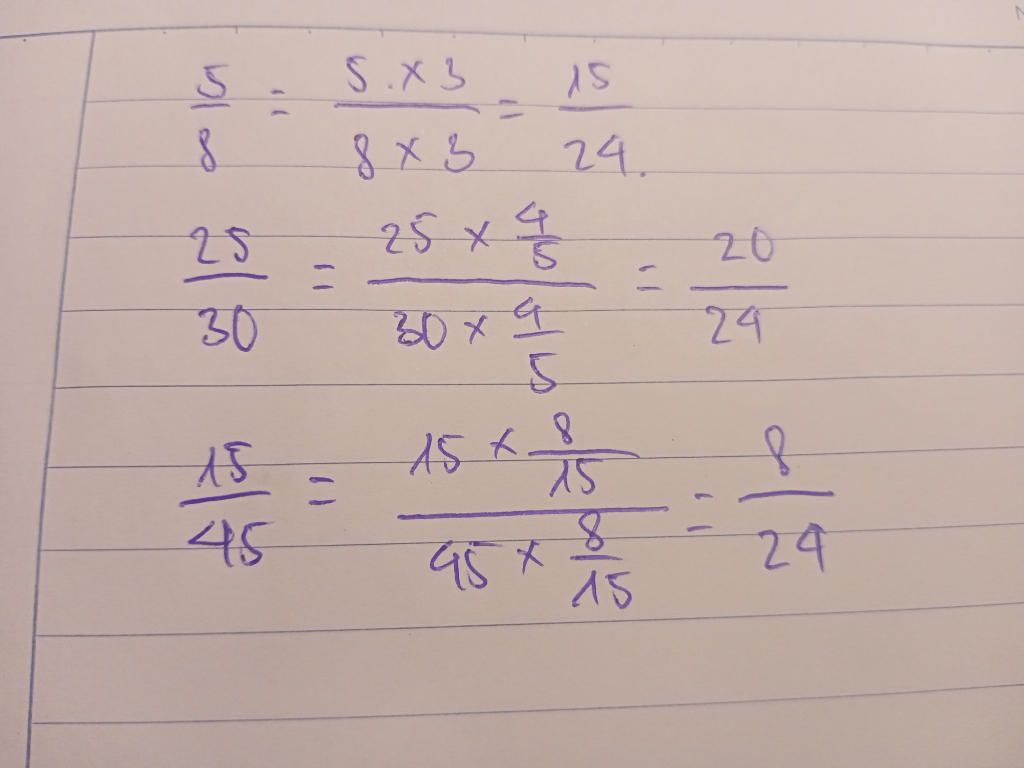 5/8 = (5 . × 3)/(8 × 3) = 15/24.
25/30 = (25 × 4/5)/(30 × 4/5) = 20/24
15/45 = (15 × 8/15)/(45 × 8/15) = 8/24